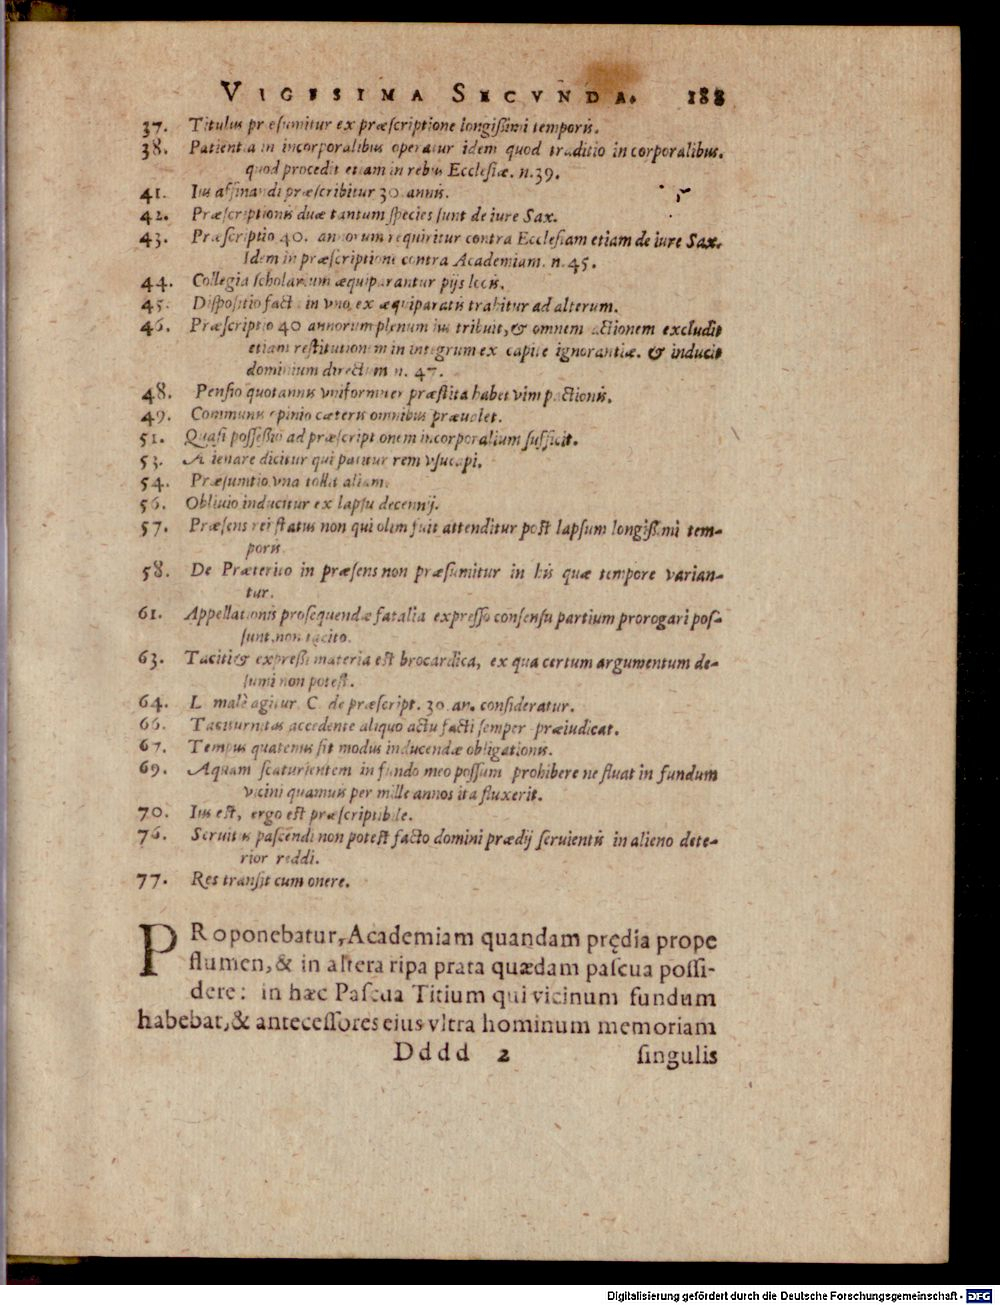 VIGESIMA SECVNDA. 188
37. Titulus præsumitur ex præscriptione longißimi temporis.
38. Patientia in incorporalibus operatur idem quod traditio in corporalibus.
quod procedit etiam in rebus Ecclesiæ. n.39.
41. Ius affinandi præscribitur 30 annis.
42. Præscriptionis duæ tantum species sunt de iure Sax.
43. Præscriptio 40. annorum requiritur contra Ecclesiam etiam de iure Sax.
Idem in præscriptione contra Academiam. n.45.
44. Collegia scholarium æquiparantur pijs locis.
45. Dispositio facta in vno, ex æquiparatis trahitur ad alterum.
46. Præscriptio 40 annorum plenum ius tribuit, & omnem actionem excludit
etiam restitutionem in integrum ex capite ignorantiæ. & inducit
dominium directum n. 47.
48. Pensio quotannis vniformiter præstita habet vim pactionis.
49. Communis opinio cæteris omnibus præualet.
51. Quasi possessio ad præscriptionem incorporalium sufficit.
53. Alienare dicitur qui patitur rem vsucapi.
54. Præsumtio vna tollit aliam.
56. Obliuio inducitur ex lapsu decennij.
57. Præsens rei status non qui olim fuit attenditur post lapsum longißimi tem-
poris.
58. De Præterito in præsens non præsumitur in his quæ tempore varian-
tur.
61. Appellationis prosequendæ fatalia expresso consensu partium prorogari pos-
sunt, non tacito.
63. Taciti & expreßi materia est brocardica, ex qua certum argumentum de-
sumi non potest.
64. L. malè agitur. C. de præscript. 30 an. consideratur.
66. Taciturnitas accedente aliquo actu facti semper præiudicat.
67. Tempus quatenus sit modus inducendæ obligationis.
69. Aquam scaturientem in fundo meo possum prohibere ne fluat in fundum
vicini quamuis per mille annos ita fluxerit.
70. Ius est, ergo est præscriptibile.
76. Seruitus pascendi non potest facto domini prædij seruientis in alieno dete-
rior reddi.
77. Res transit cum onere.
PRoponebatur, Academiam quandam prędia prope
flumen, & in altera ripa prata quædam pascua possi-
dere: in hæc Pascua Titium qui vicinum fundum
habebat, & antecessores eius vltra hominum memoriam
Dddd 2 singulis
Digitalisierung gefördert durch die Deutsche Forschungsgemeinschaft - DFG